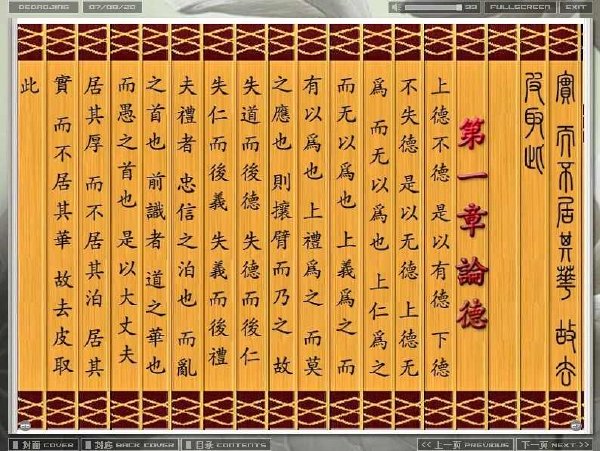 DEDAOJING
07/08/20
99
FULLSCREEN
EXIT
實 而不居其華 故去
皮取此
第一章論德
上德不德 是以有德 下德
不失德 是以无德 上德无
爲 而无以爲也 上仁爲之
而无以爲也 上義爲之 而
有以爲也 上禮爲之 而莫
之應也 則攘臂而乃之 故
失道而後德 失德而後仁
失仁而後義 失義而後禮
夫禮者 忠信之泊也 而亂
之首也 前識者 道之華也
而愚之首也 是以大丈夫
居其厚 而不居其泊 居其
實 而不居其華 故去皮取
此
封面 COVER
封底 BACK COVER
目录 CONTENTS
<< 上一页 PREVIOUS
下一页 NEXT >>